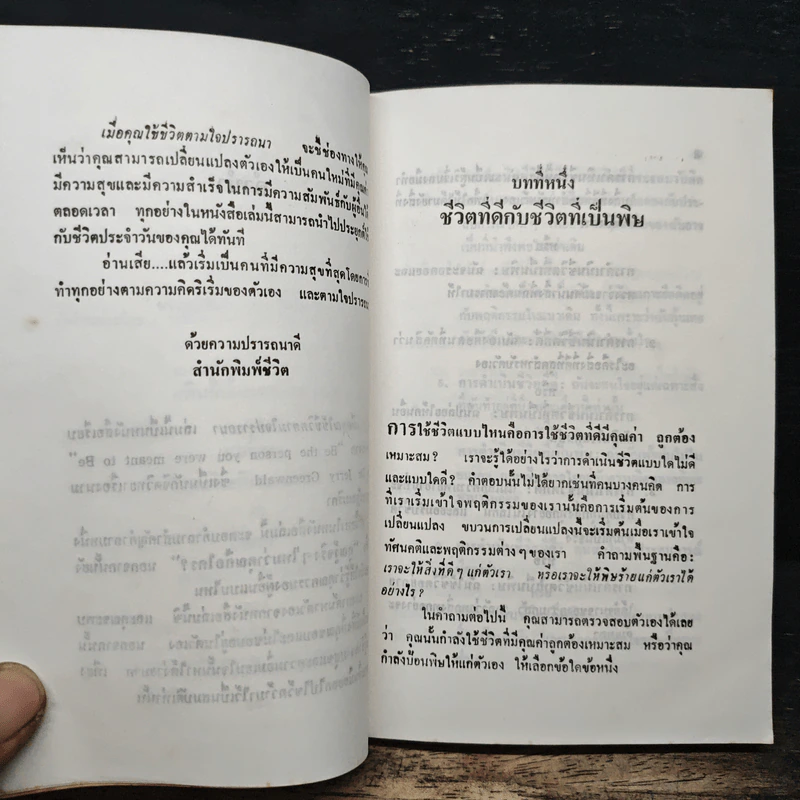 เมื่อคุณใช้ชีวิตตามใจปรารถนา จะชี้ช่องทางให้คุณ
เห็นว่าคุณสามารถเปลี่ยนแปลงตัวเองให้เป็นคนใหม่ที่มี
มีความสุขและมีความสำเร็จในการมีความสัมพันธ์กับผู้อื่น
ตลอดเวลา ทุกอย่างในหนังสือเล่มนี้สามารถนำไปประยุกต์
กับชีวิตประจำวันของคุณได้ทันที
อ่านเสีย....แล้วเริ่มเป็นคนที่มีความสุขที่สุดโดยการ
ทำทุกอย่างตามความคิดริเริ่มของตัวเอง และตามใจปรารถ
ด้วยความปรารถนาดี
สำนักพิมพ์ชีวิต
บทที่หนึ่ง
ชีวิตที่ดีกับชีวิตที่เป็นพิษ
การใช้ชีวิตแบบไหนคือการใช้ชีวิตที่ดีมีคุณค่า ถูกต้อง
เหมาะสม? เราจะรู้ได้อย่างไรว่าการดำเนินชีวิตแบบใดไม่ดี
และแบบใดดี? คำตอบนั้นไม่ได้ยากเช่นที่คนบางคนคิด การ
ที่เราเริ่มเข้าใจพฤติกรรมของเรานั้นคือการเริ่มต้นของการ
เปลี่ยนแปลง ขบวนการเปลี่ยนแปลงนี้จะเริ่มต้นเมื่อเราเข้าใจ
ทัศนคติและพฤติกรรมต่างๆของเรา คำถามพื้นฐานคือ:
เราจะให้สิ่งที่ดีๆแก่ตัวเรา หรือเราจะให้พิษร้ายแก่ตัวเราได้
อย่างไร?
ในคำถามต่อไปนี้ คุณสามารถตรวจสอบตัวเองได้เลย
ว่า คุณนั้นกำลังใช้ชีวิตที่มีคุณค่าถูกต้องเหมาะสม หรือว่าคุณ
กำลังป้อนพิษให้แก่ตัวเอง ให้เลือกข้อใดข้อหนึ่ง